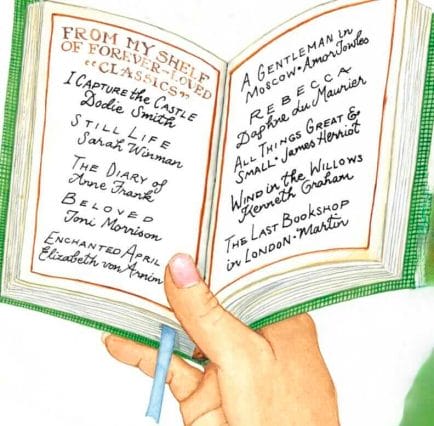 FROM MY SHELF
OF FOREVER-LOVED
"CLASSICS"
I CAPTURE the CASTLE
Dodie Smith
STILL LIFE
Sarah Winman
THE DIARY of
Anne Frank
BELOVED
Toni Morrison
ENCHANTED APRIL
Elizabeth von Arnim
A GENTLEMAN in
MOSCOW • Amor Towles
REBECCA
Daphne du Maurier
ALL THINGS GREAT &
SMALL • James Herriot
WIND in the WILLOWS
Kenneth Graham
THE LAST BOOKSHOP
in LONDON • Martin